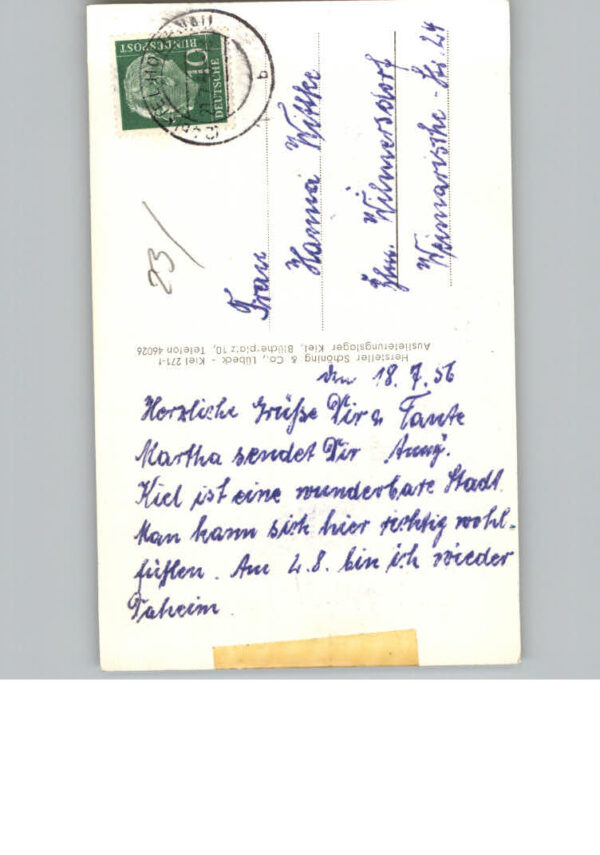 DEUTSCHE
BUNDESPOST
10
23/
Frau
Hanna Wittke
Bln. Wilmersdorf
Weimarische-Str. 24
Hersteller Schöning & Co., Lübeck - Kiel 271-f
Auslieferungslager Kiel, Blücherplatz 10, Telefon 46026
den 18.7.56
Herzliche Grüße Dir u Tante
Martha sendet Dir Anny.
Kiel ist eine wunderbare Stadt
Man kann sich hier richtig wohl-
fühlen. Am 4.8. bin ich wieder
Daheim.